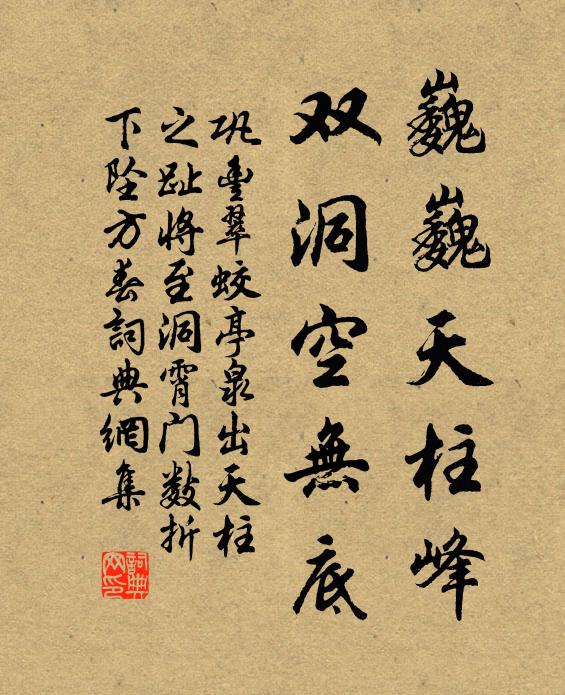 巍巍天柱峰
双洞空無底
巩豊翠蛟亭泉出天柱
之趾將至洞霄门数折
下坠方春詞典網集
詞典网印